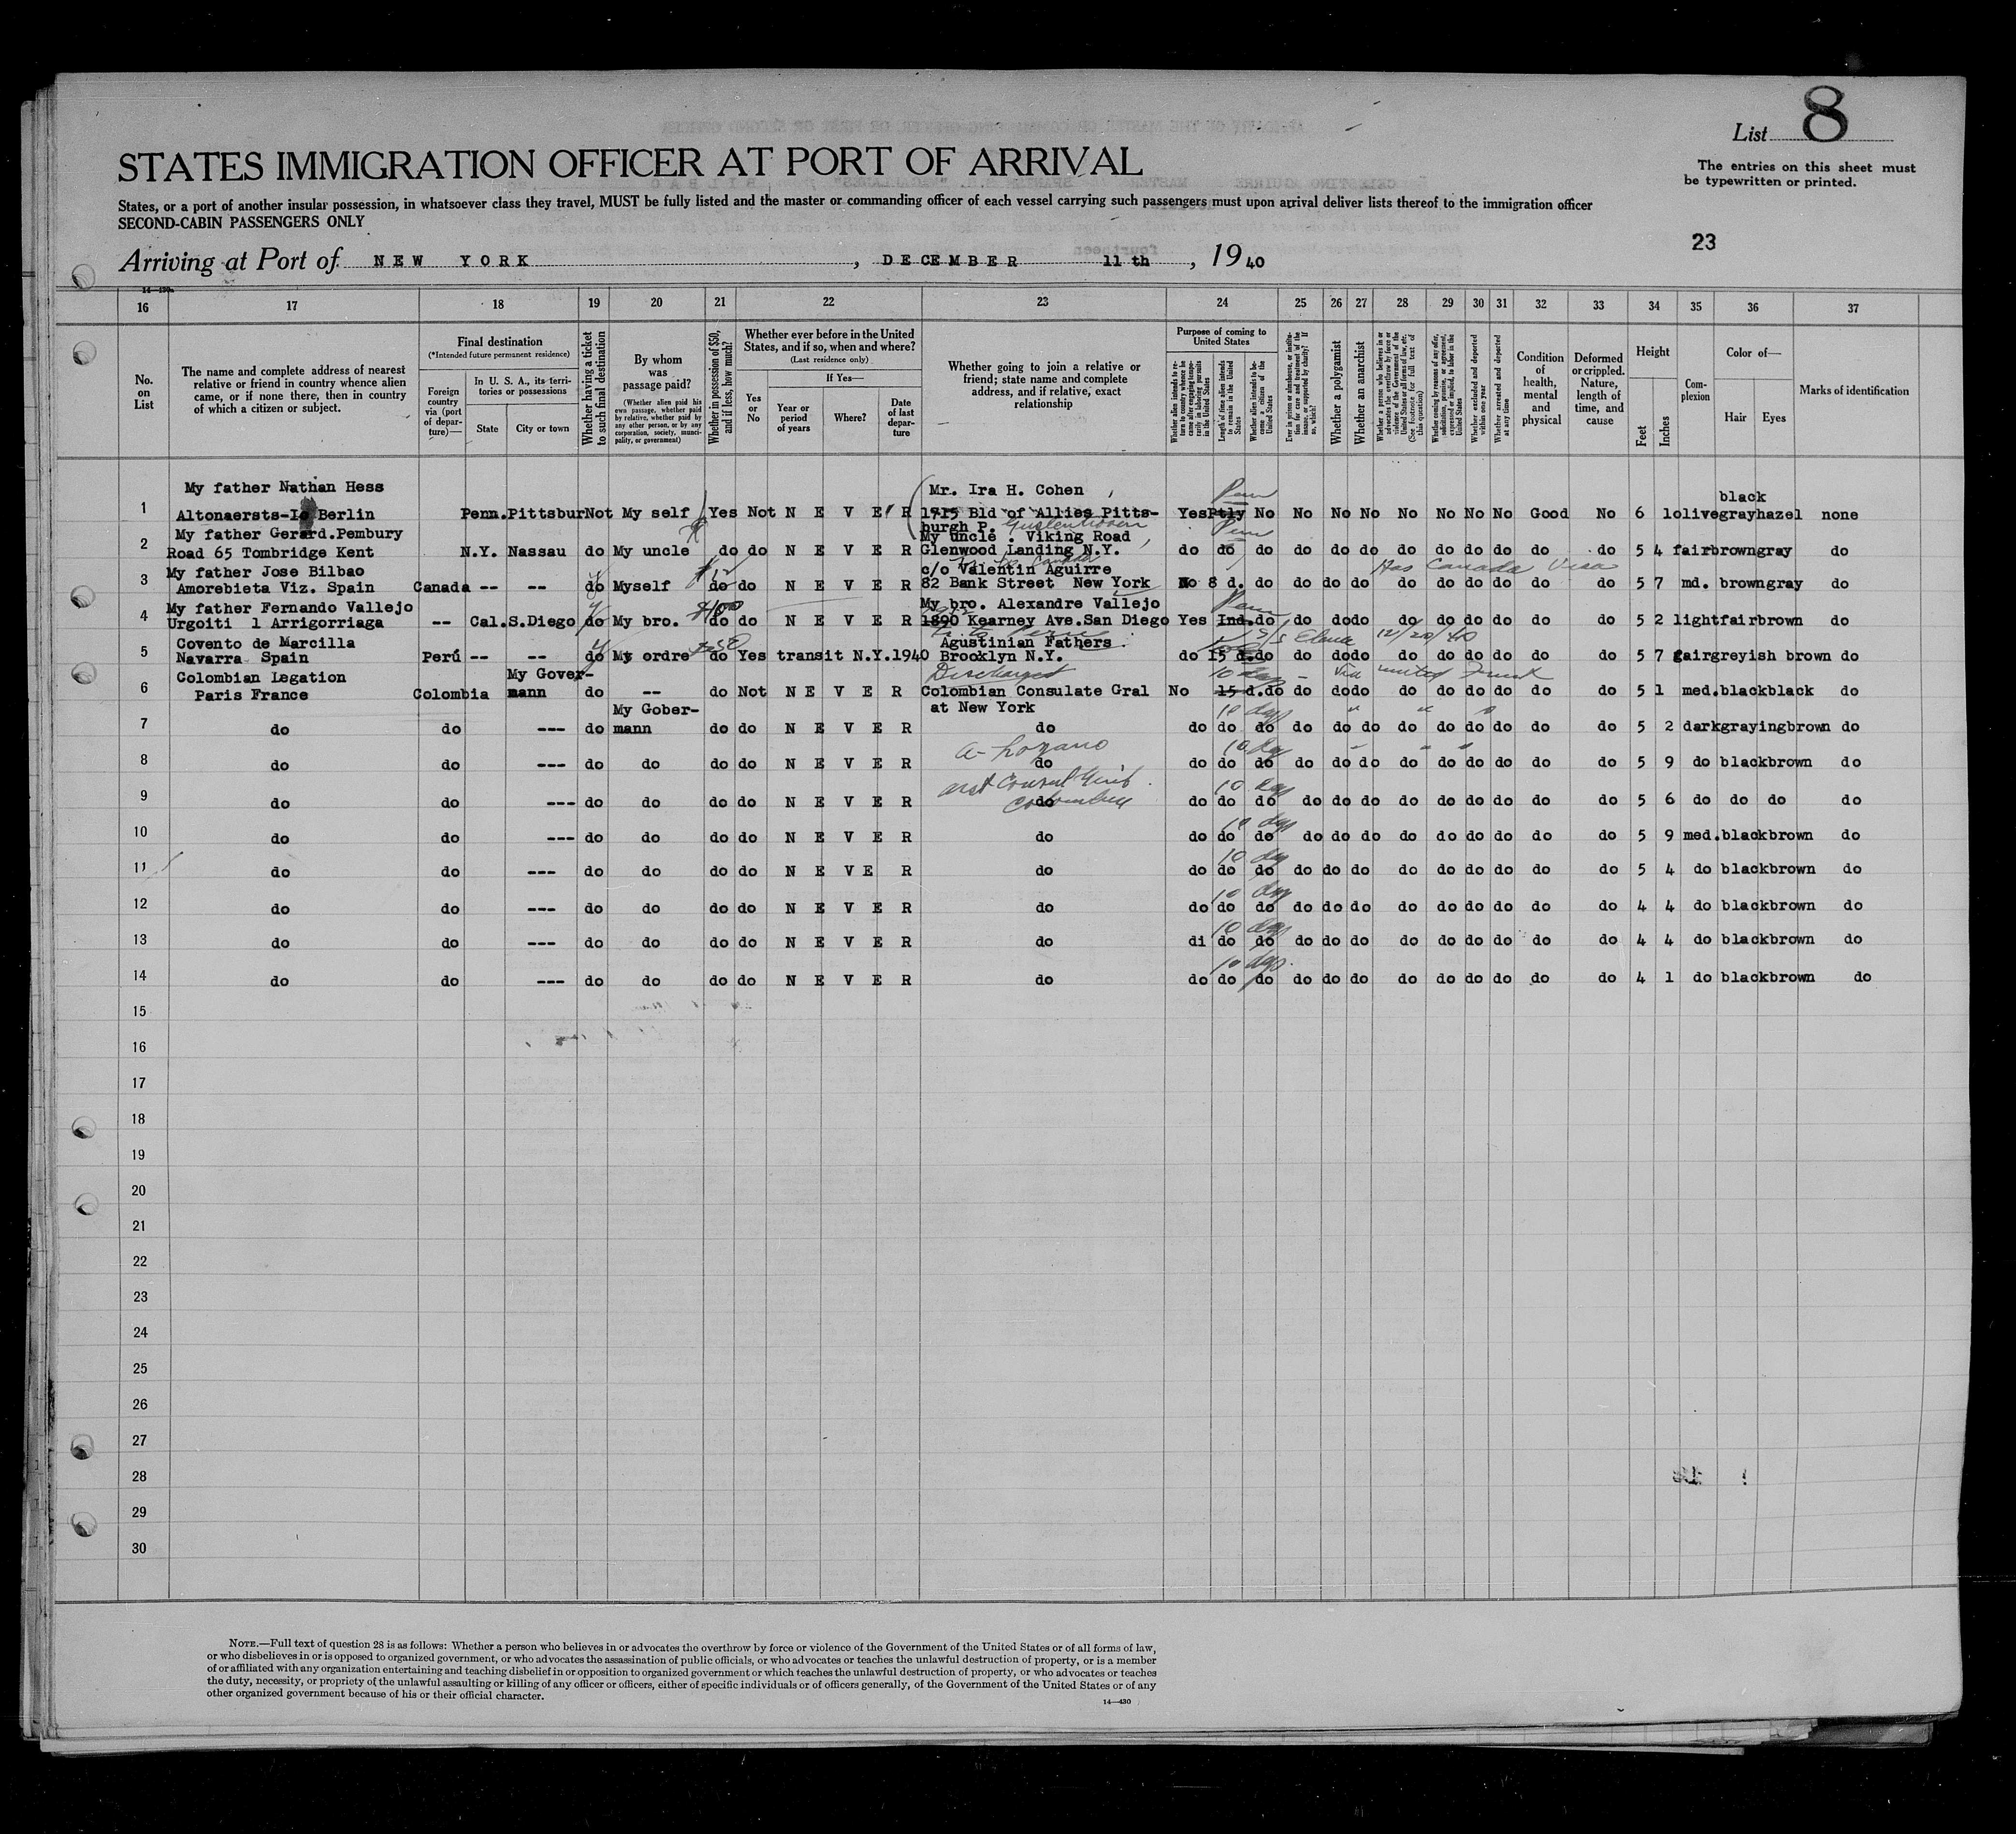 List 8
The entries on this sheet must
be typewritten or printed.
STATES IMMIGRATION OFFICER AT PORT OF ARRIVAL
States, or a port of another insular possession, in whatsoever class they travel, MUST be fully listed and the master or commanding officer of each vessel carrying such passengers must upon arrival deliver lists thereof to the immigration officer
SECOND-CABIN PASSENGERS ONLY
23
Arriving at Port of NEW YORK, DECEMBER 11 th, 19 40
16 17 18 19 20 21 22 23 24 25 26 27 28 29 30 31 32 33 34 35 36 37
No. on List
The name and complete address of nearest relative or friend in country whence alien came, or if none there, then in country of which a citizen or subject.
Final destination
(*Intended future permanent residence)
Foreign country via (port of departure)—
In U. S. A., its territories or possessions
State
City or town
Whether having a ticket to such final destination
By whom was passage paid?
(Whether alien paid his own passage, whether paid by relative, whether paid by any other person, or by any corporation, society, municipality, or government)
Whether in possession of $50, and if less, how much?
Whether ever before in the United States, and if so, when and where?
(Last residence only)
If Yes—
Yes or No
Year or period of years
Where?
Date of last departure
Whether going to join a relative or friend; state name and complete address, and if relative, exact relationship
Purpose of coming to United States
Length of time alien intends to remain in the United States
Whether alien intends to become a citizen of the United States
Whether a polygamist
Whether an anarchist
Condition of health, mental and physical
Deformed or crippled. Nature, length of time, and cause
Height
Feet
Inches
Complexion
Color of—
Hair
Eyes
Marks of identification
My father Nathan Hess Mr. Ira H. Cohen black
1 Altonaersts- Berlin Penn. Pittsbur Not My self Yes Not N E V E R 1715 Bld of Allies Pitts- Yes Ptly No No No No No No No No Good No 6 1 olive gray hazel none
burgh P.
My father Gerard.Pembury My uncle . Viking Road
2 Road 65 Tombridge Kent N.Y. Nassau do My uncle do do N E V E R Glenwood Landing N.Y. do do do do do do do do do do do do 5 4 fair brown gray do
My father Jose Bilbao c/o Valentin Aguirre Has Canada Visa
3 Amorebieta Viz. Spain Canada -- -- do Myself do do N E V E R 82 Bank Street New York No 8 d. do do do do do do do do do do 5 7 md. brown gray do
My father Fernando Vallejo $100 My bro. Alexandre Vallejo
4 Urgoiti 1 Arrigorriaga -- Cal. S.Diego do My bro. do do N E V E R 1890 Kearney Ave.San Diego Yes Ind. do do do do do do do do do do 5 2 light fair brown do
Covento de Marcilla Agustinian Fathers 12/20/40
5 Navarra Spain Perú -- -- do My ordre do Yes transit N.Y. 1940 Brooklyn N.Y. do 15 d. do do do do do do do do do do 5 7 gair greyish brown do
Colombian Legation My Gover- Discharged 10 days - Via united Fruit
6 Paris France Colombia mann do -- do Not N E V E R Colombian Consulate Gral No 15 d. do do do do do do do do do do 5 1 med. black black do
My Gober- at New York 10 days
7 do do --- do mann do do N E V E R do do do do do do do do do do do do do 5 2 dark graying brown do
A- Lozano 10 days
8 do do --- do do do do N E V E R do do do do do do do do do do do do do 5 9 do black brown do
10 days
9 do do --- do do do do N E V E R do do do do do do do do do do do do do 5 6 do do do do
10 days
10 do do --- do do do do N E V E R do do do do do do do do do do do do do 5 9 med. black brown do
10 days
11 do do --- do do do do N E V E R do do do do do do do do do do do do do 5 4 do black brown do
10 days
12 do do --- do do do do N E V E R do do do do do do do do do do do do do 4 4 do black brown do
10 days
13 do do --- do do do do N E V E R do di do do do do do do do do do do do 4 4 do black brown do
10 days
14 do do --- do do do do N E V E R do do do do do do do do do do do do do 4 1 do black brown do
15
16
17
18
19
20
21
22
23
24
25
26
27
28
29
30
NOTE.—Full text of question 28 is as follows: Whether a person who believes in or advocates the overthrow by force or violence of the Government of the United States or of all forms of law,
or who disbelieves in or is opposed to organized government, or who advocates the assassination of public officials, or who advocates or teaches the unlawful destruction of property, or is a member
of or affiliated with any organization entertaining and teaching disbelief in or opposition to organized government or which teaches the unlawful destruction of property, or who advocates or teaches
the duty, necessity, or propriety of the unlawful assaulting or killing of any officer or officers, either of specific individuals or of officers generally, of the Government of the United States or of any
other organized government because of his or their official character.
14—430